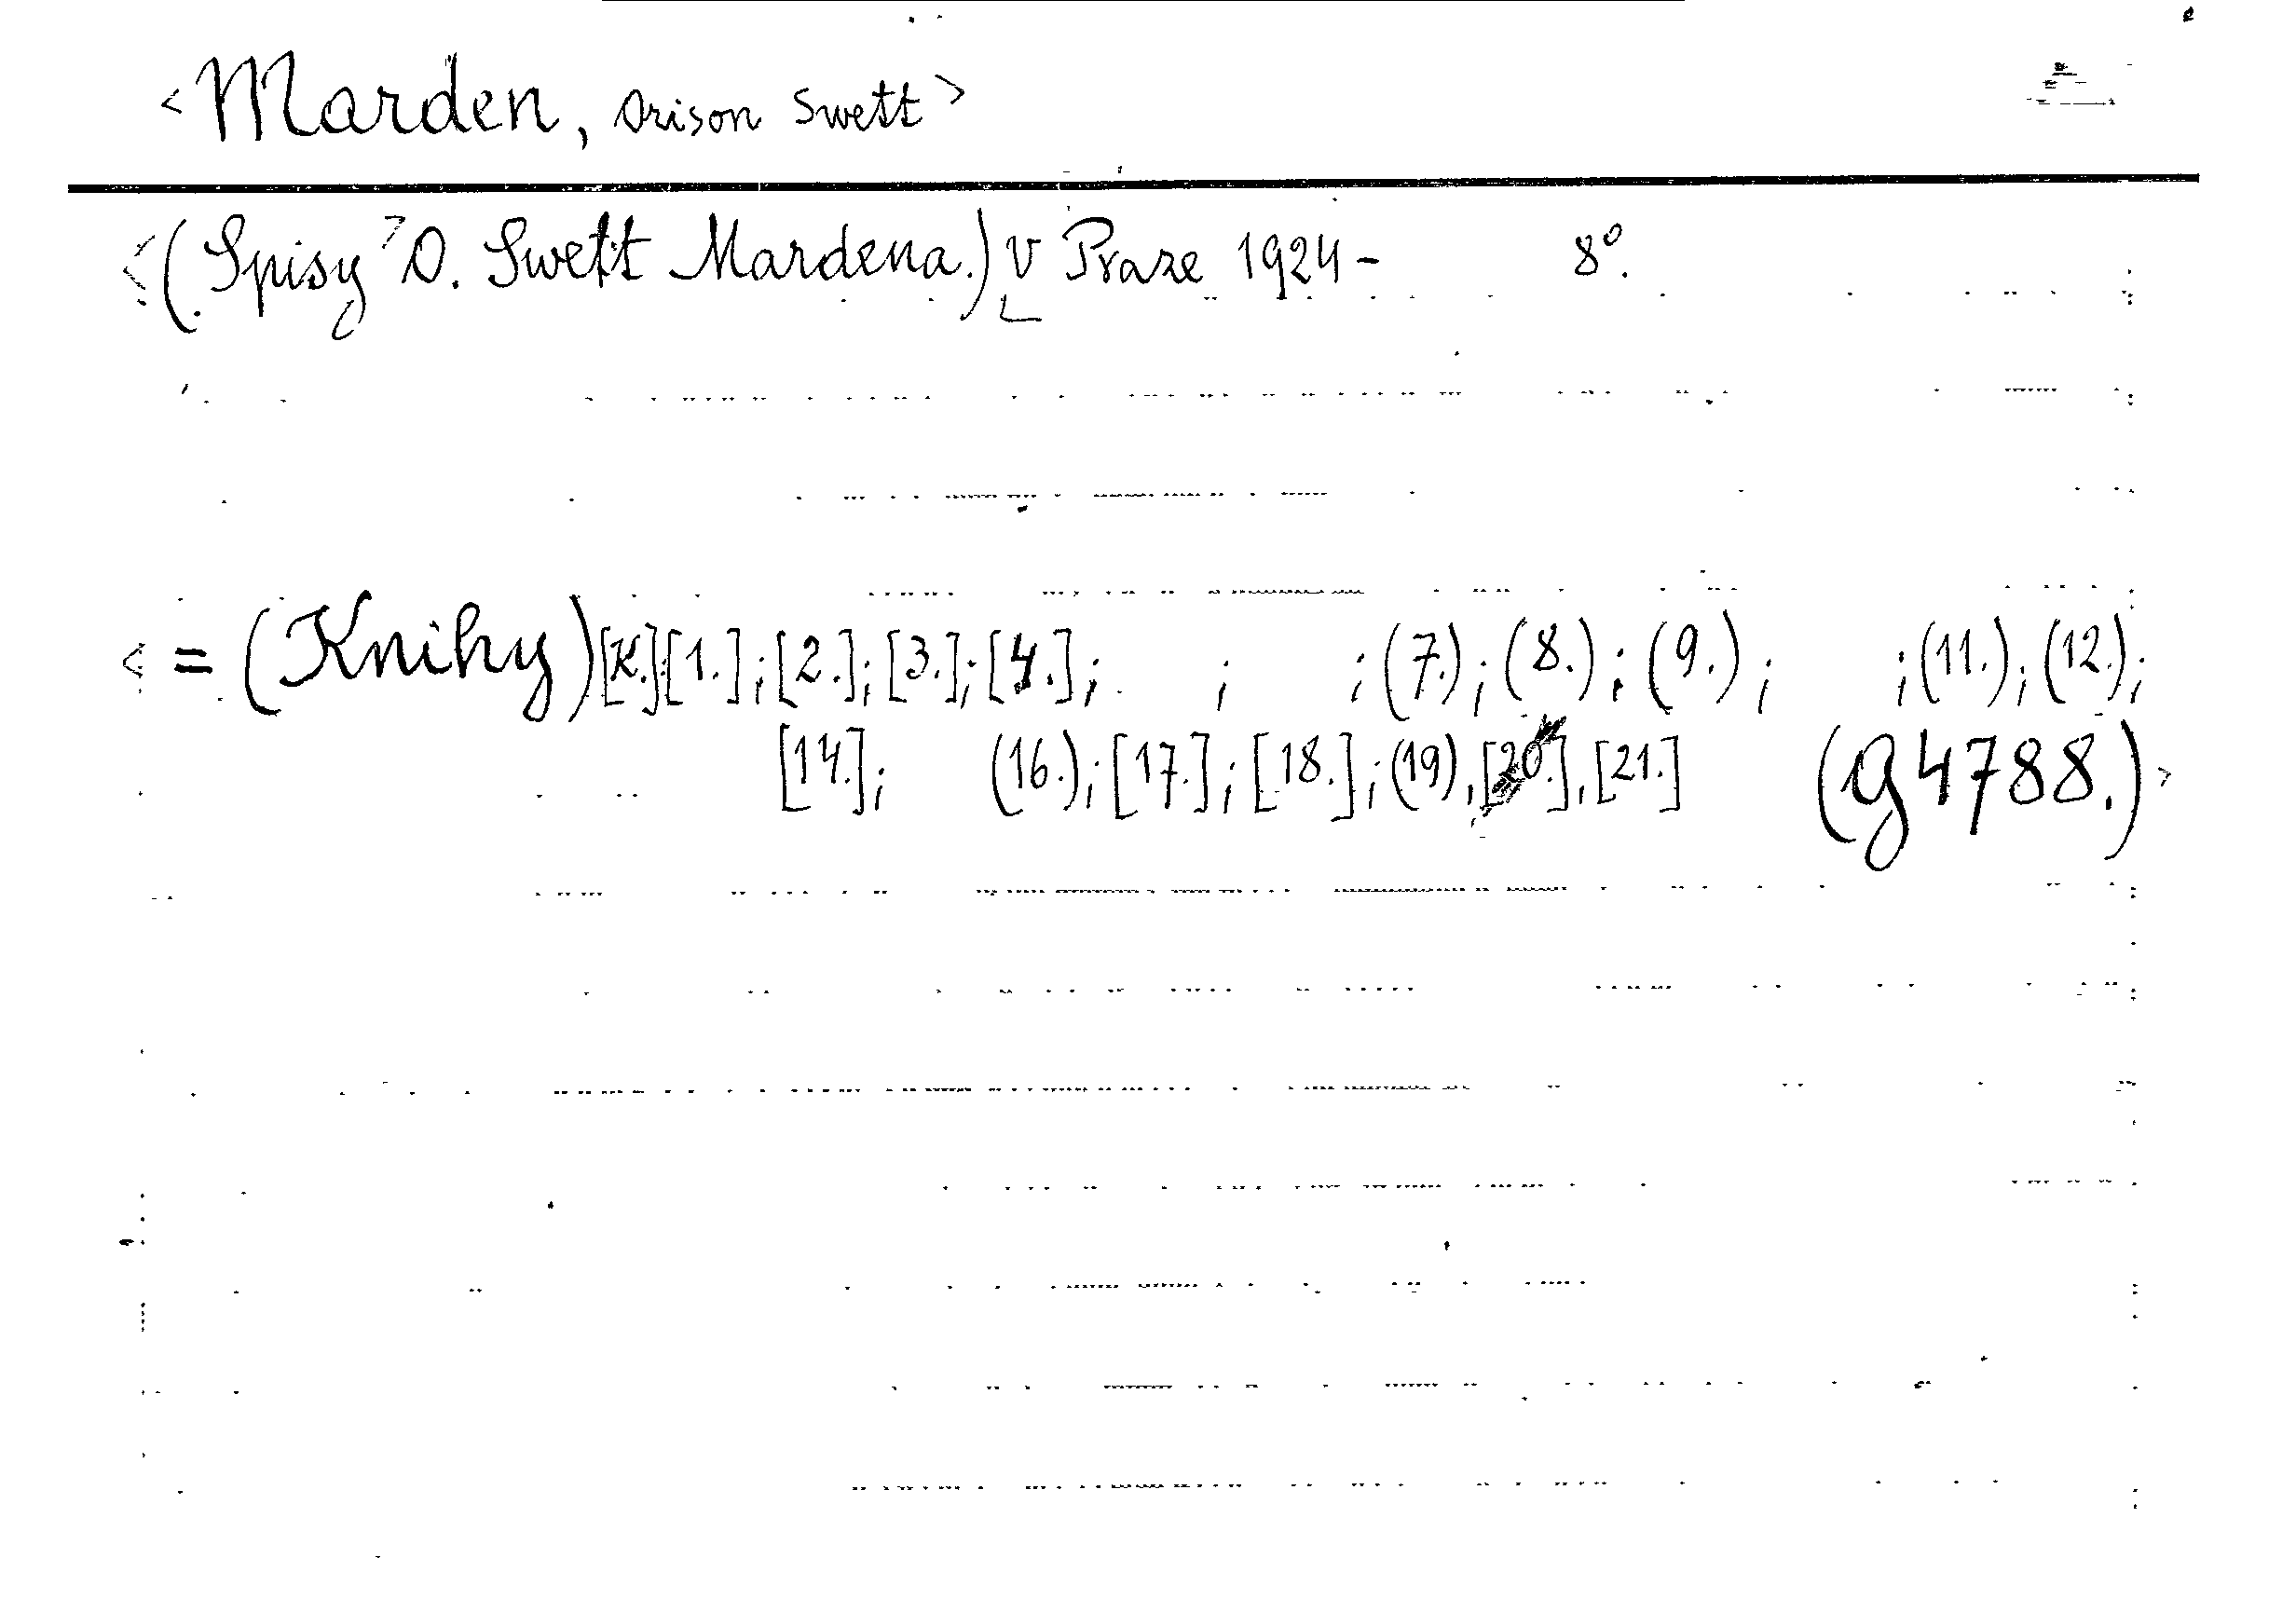 <Marden, Orison Swett>
<(Spisy> O. Swett Mardena.) V Praze 1924- 8°.
<=(Knihy)[K.][1.];[2.];[3.];[4.]; ; ;(7.);(8.);(9.); ;(11.);(12.);
[14.]; (16.);[17.];[18.];(19),[20.],[21.] (g4788.)>